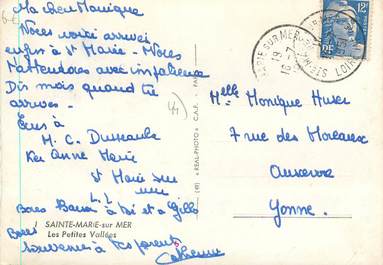 Ma chere Monique
Nous voici arrivés
enfin à Ste Marie - Nous
t'attendons avec impatience
Dis mois quand tu
arrives -
Ecris à
M. C. Dussaule
Ker Anne Marie
Ste Marie sur
mer
L. I.
Bons Baisers à toi et à Gille
Bons
souvenirs à tes parents
Catherine
SAINTE-MARIE-sur MER
Les Petites Vallées
"REAL-PHOTO" C.A.P.
STE MARIE SUR MER
LOIRE
12F
Melle Monique Huser
7 rue des Moreaux
Auxerre
Yonne.